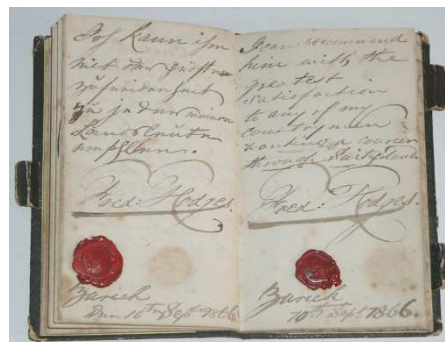 Ich kann ihn
mit der größten
Zufriedenheit
zu jedem meiner
Landsleute
empfehlen.
Fred: Hodges.
Zurich
den 10ten Sept 1866
I can recommend
him with the
greatest
satisfaction
to any of my
countrymen
wanting a courier
through Switzerland
Fred: Hodges.
Zurich
10th Sept 1866